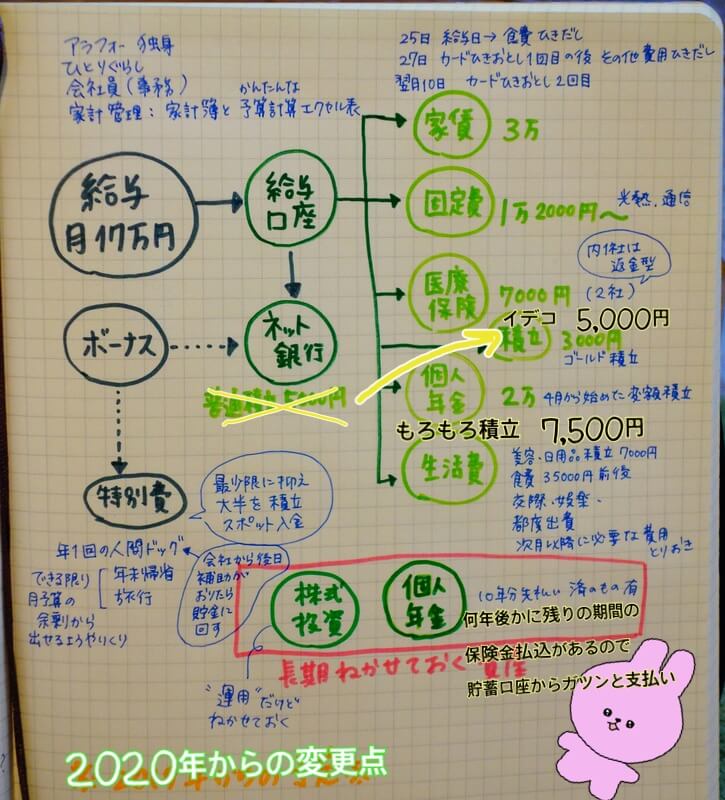 アラフォー 独身
ひとりぐらし
会社員(事務)
かんたんな
家計管理:家計簿と予算計算エクセル表
25日 給与日→食費ひきだし
27日 カードひきおとし1回目の後 その他費用ひきだし
翌月10日 カードひきおとし2回目
給与
月17万円
給与
口座
家賃
3万
固定費
1万2000円〜
光熱.通信
医療
保険
7000円
(2社)
内1社は
返金型
イデコ 5,000円
積立
3000円
ゴールド積立
ボーナス
ネット
銀行
普通積立5000円
個人
年金
2万
4月から始めた変額積立
もろもろ積立 7,500円
生活費
美容.日用品積立7000円
食費35000円前後
交際.娯楽.
都度出費
次月以降に必要な費用
とりおき
特別費
最少限に抑え
大半を積立
スポット入金
年1回の人間ドッグ
できる限り
月予算の
余剰から
出せるようやりくり
年末帰省
旅行
会社から後日
補助が
おりたら
貯金に
回す
株式
投資
個人
年金
10年分先払い済のもの有
何年後かに残りの期間の
保険金払込があるので
貯蓄口座からガツンと支払い
長期ねかせておく
"運用"だけど
ねかせておく
2020年からの変更点